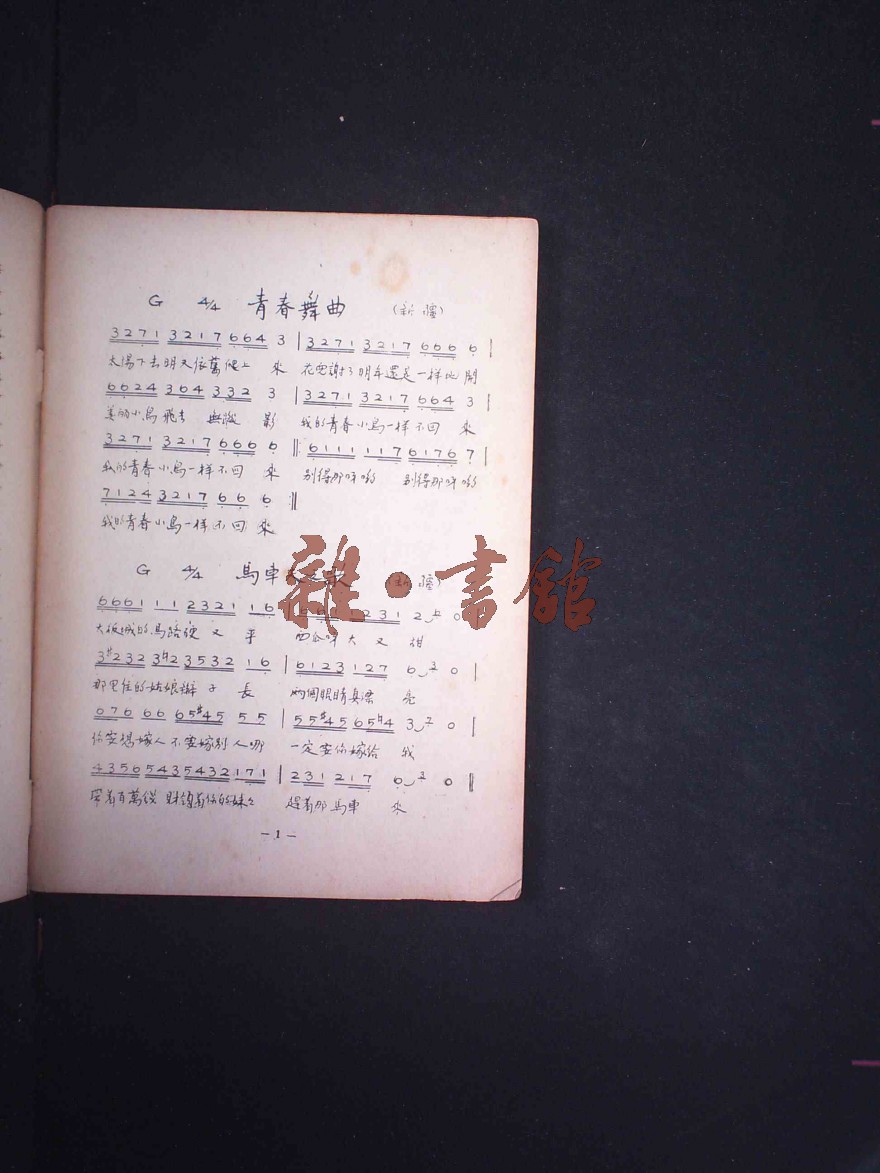 G 4/4 青春舞曲 (新疆)
3271 3217 664 3 | 3271 3217 666 6 |
太陽下去明天依舊爬上 來 花兒謝了明年還是一樣地 開
6624 364 332 3 | 3271 3217 664 3 |
美丽小鳥飛去 無 影 我的青春小鳥一樣不回 來
3271 3217 666 6 ‖: 6111 117 6176 7 |
我的青春小鳥一樣不回 來 别得那呀喲 别得那呀喲
7124 3217 66 6 :‖
我的青春小鳥一樣不回 來
G 4/4 馬車夫之歌 (新疆)
6661 11 2321 16 | 1231 2 0
大板城的馬路硬又平 西瓜呀大又甜
3#232 3♮2 3532 16 | 6123 127 6 2 0 |
那里住的姑娘辮子長 兩個眼睛真漂亮
076 66 65#45 55 | 55#45 65♮4 3 2 0 |
你要想嫁人不要嫁别人哪 一定要你嫁給我
4356 5435 432171 | 231 217 6 2 0 ‖
帶着百萬錢 財領着你的妹々 趕着那馬車來
— 1 —
雜·書館